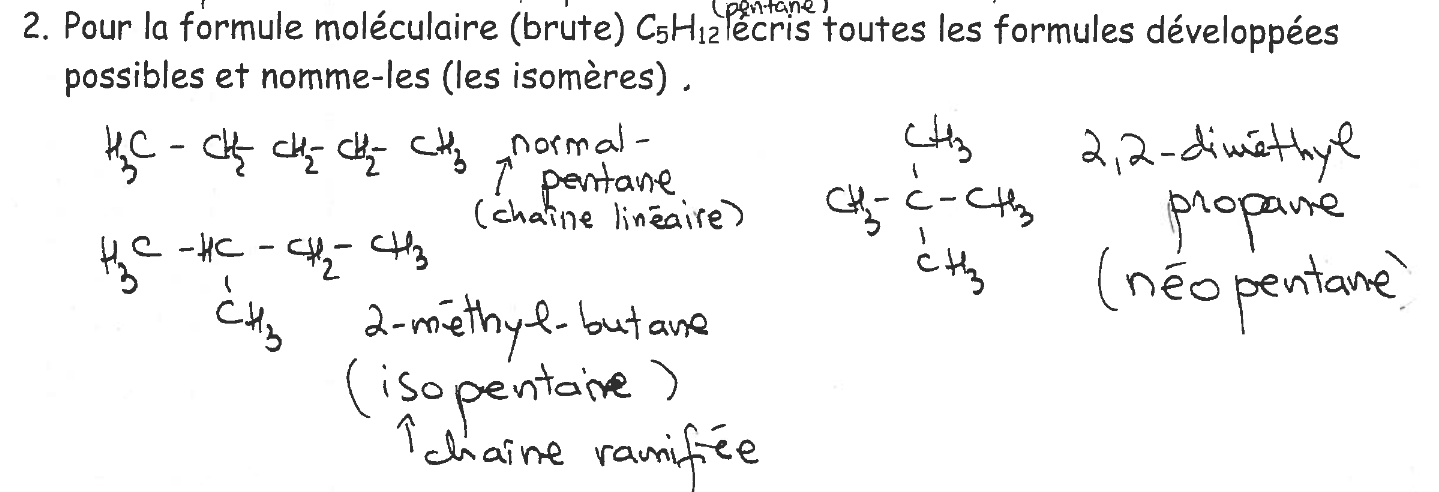 (pentane)
2. Pour la formule moléculaire (brute) C5H12 écris toutes les formules développées
possibles et nomme-les (les isomères) .
H3C - CH2 - CH2 - CH2 - CH3 normal-
pentane
(chaîne linéaire)
H3C - HC - CH2 - CH3
CH3
2-méthyl-butane
(isopentane)
↑chaîne ramifiée
CH3
CH3 - C - CH3
CH3
2,2-diméthyl
propane
(néopentane)